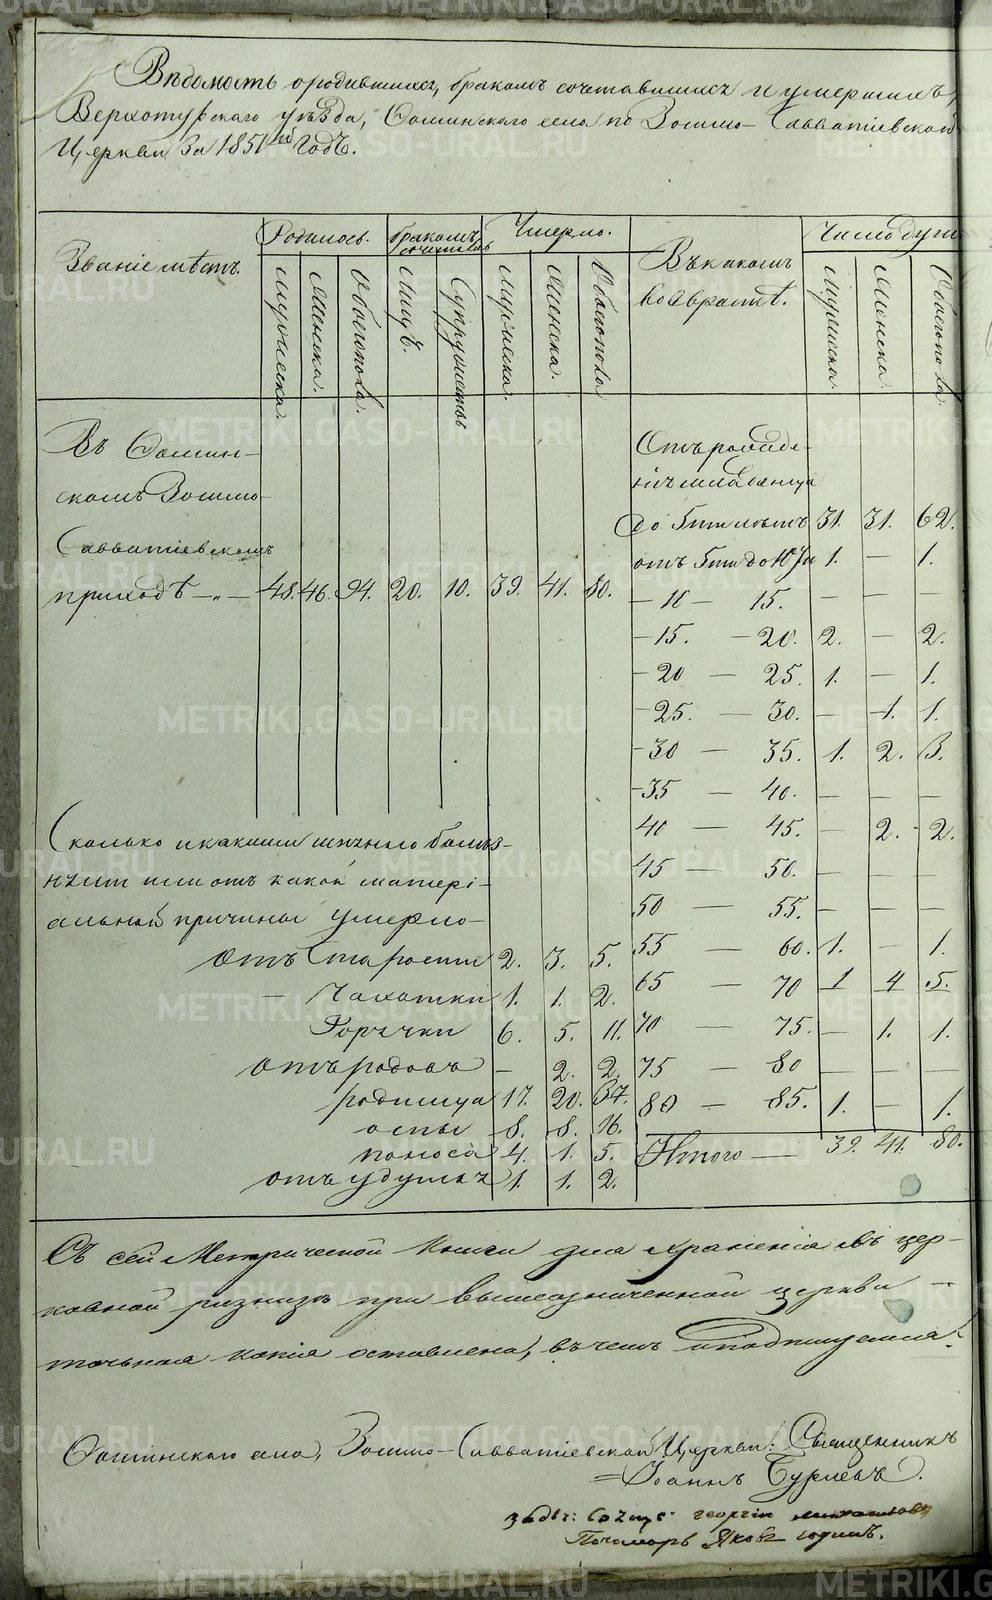 Вѣдомость о родившихся, бракомъ сочетавшихся и умершихъ,
Верхотурскаго уѣзда, Фоминскаго села по Зосимо-Савватіевской
Церкви за 1851й Годъ.
Званіе мѣстъ.
Родилось.
Бракомъ сочеталось
Умерло.
Въ какомъ возрастѣ.
Число душъ
Мужеска.
Женска.
Обоего пола.
Лицъ.
Супружествъ
Мужеска.
Женска.
Обоего пола
Мужеска.
Женска.
Обоего пола.
Въ Фомин-
скомъ Зосимо-
Савватіевскомъ
приходѣ —„— 48. 46. 94. 20. 10. 39. 41. 80.
Отъ рожде-
нія младенца
до 5ти лѣтъ 31. 31. 62.
отъ 5ти до 10ти 1. — 1.
— 10 — 15. — — —
— 15. — 20. 2. — 2.
— 20 — 25. 1. — 1.
— 25. — 30. — 1. 1.
— 30 — 35. 1. 2. 3.
— 35 — 40. — — —
40 — 45. — 2. 2.
45 — 50. — — —
50 — 55. — — —
55 — 60. 1. — 1.
65 — 70 1 4 5.
70 — 75. — 1. 1.
75 — 80 — — —
80 — 85. 1. — 1.
Итого — 39. 41. 80.
Сколько и какими именно болѣз-
нями или отъ какой матері-
альной причины умерло —
отъ Старости 2. 3. 5.
— Чахотки 1. 1. 2.
Горячки 6. 5. 11.
отъ родовъ — 2. 2.
родимца 17. 20. 37.
оспы 8. 8. 16.
поноса 4. 1. 5.
отъ удушья 1. 1. 2.
Съ сей Метрической Книги для храненія въ цер-
ковной ризницѣ при вышеозначенной церкви
точная копія оставлена, въ чемъ и подпишемся.
Фоминскаго села, Зосимо-Савватіевской Церкви: Священникъ
Іоаннъ Бурлевъ.
Георгій Михайловъ
Пономарь Яковъ
METRIKI.GASO-URAL.RU